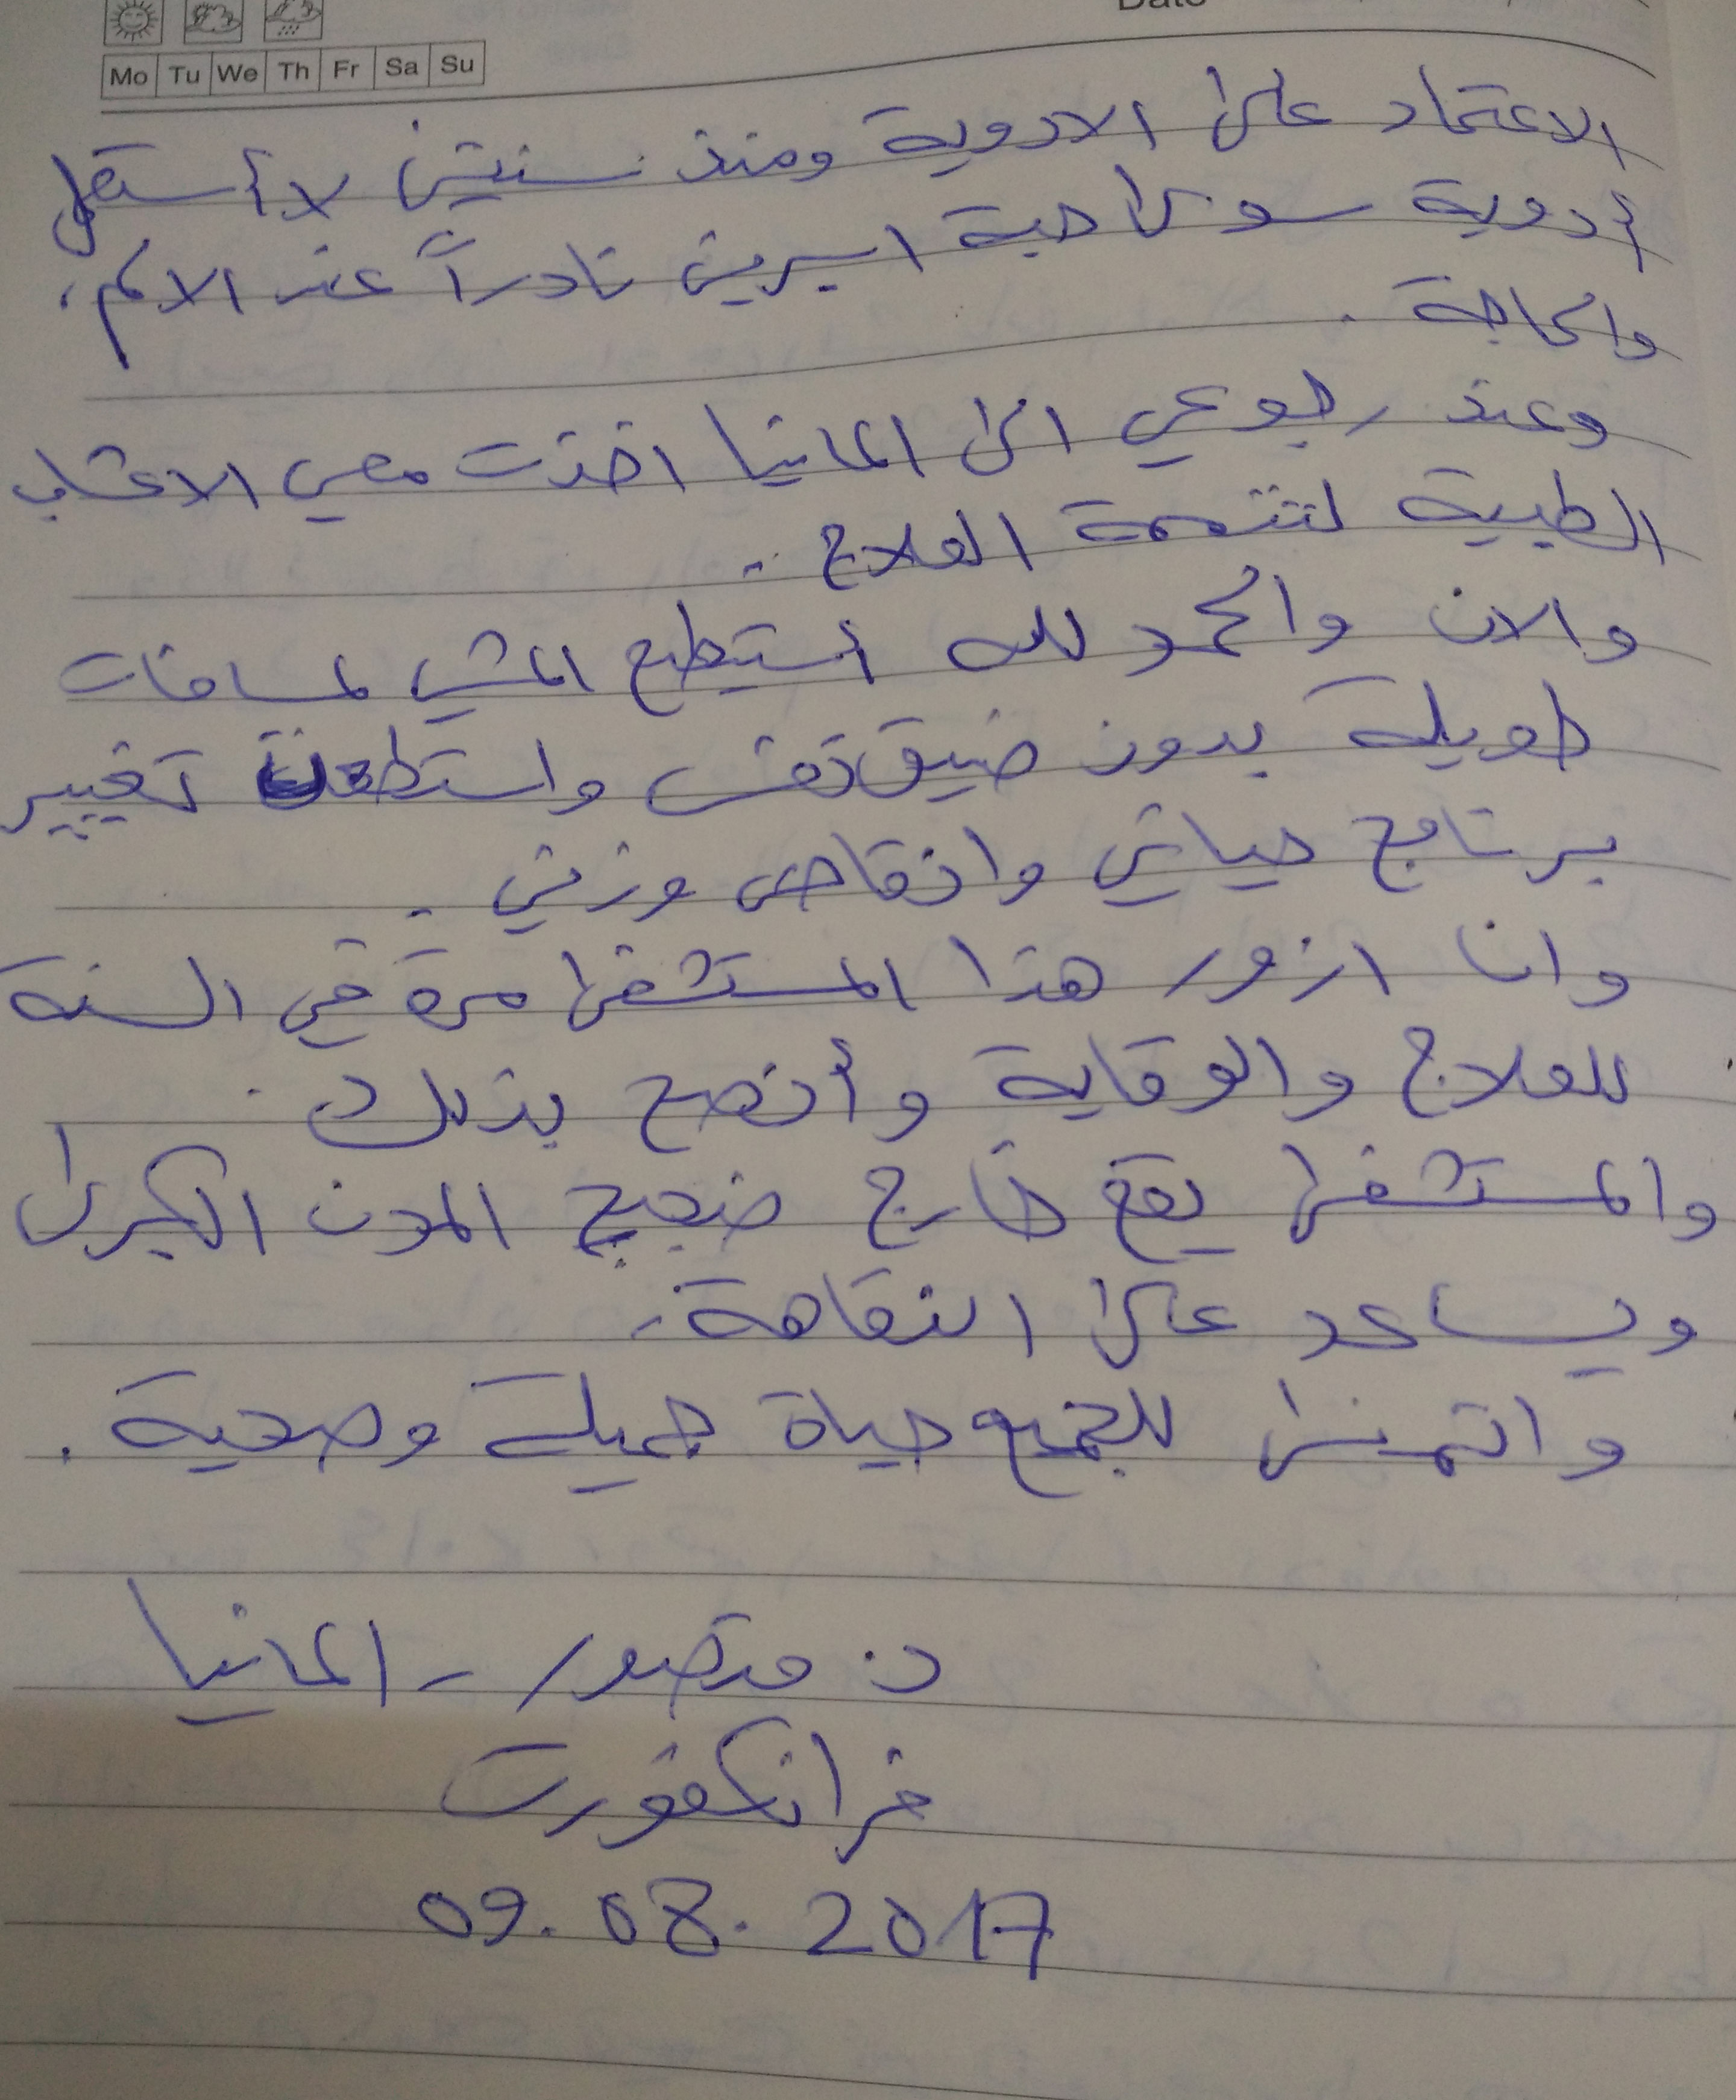 Date
Mo Tu We Th Fr Sa Su
الاعتماد على الادوية ومنذ سنتين لا أستعمل
أدوية سوى حبة اسبرين نادراً عند الالم،
والحاجة .
وعند رجوعي الى المانيا اخذت معي الاعشاب
الطبية لتتمة العلاج ..
والان والحمد لله أستيطع المشي لمسافات
طويلة بدون ضيق تنفس واستطعت تغيير
برنامج حياتي وانقاص وزني .
وانا ازور هذا المستشفى مرة في السنة
للعلاج والوقاية وأنصح بذلك .
والمستشفى يقع خارج ضجيج المدن الكبرى
ويساعد على النقاهة .
واتمنى للجميع حياة جميلة وصحية .
د. منصور - المانيا
فرانكفورت
09.08.2017